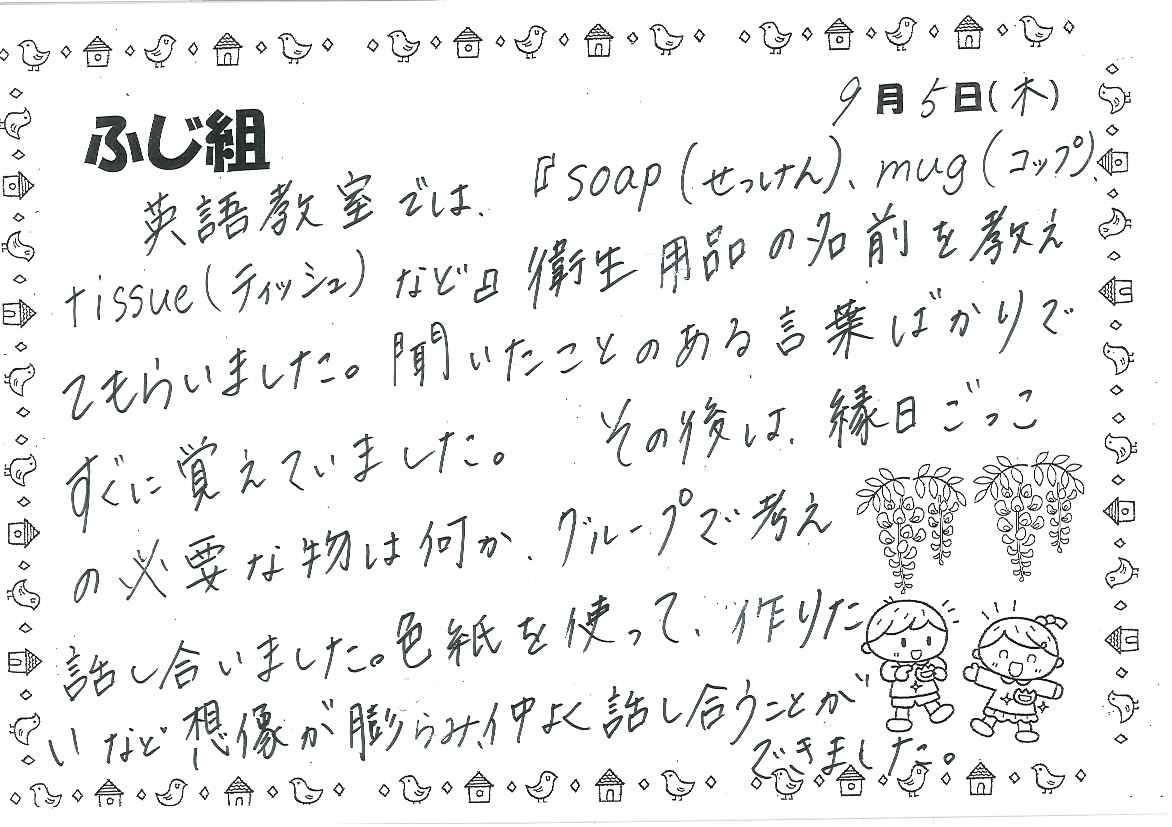 9月5日(木)
ふじ組
英語教室では、『soap(せっけん)、mug(コップ)、
tissue(ティッシュ)など』衛生用品の名前を教え
てもらいました。聞いたことのある言葉ばかりで
すぐに覚えていました。 その後は、縁日ごっこ
の必要な物は何か、グループで考え
話し合いました。色紙を使って、作りた
いなど想像が膨らみ、仲よく話し合うことが
できました。